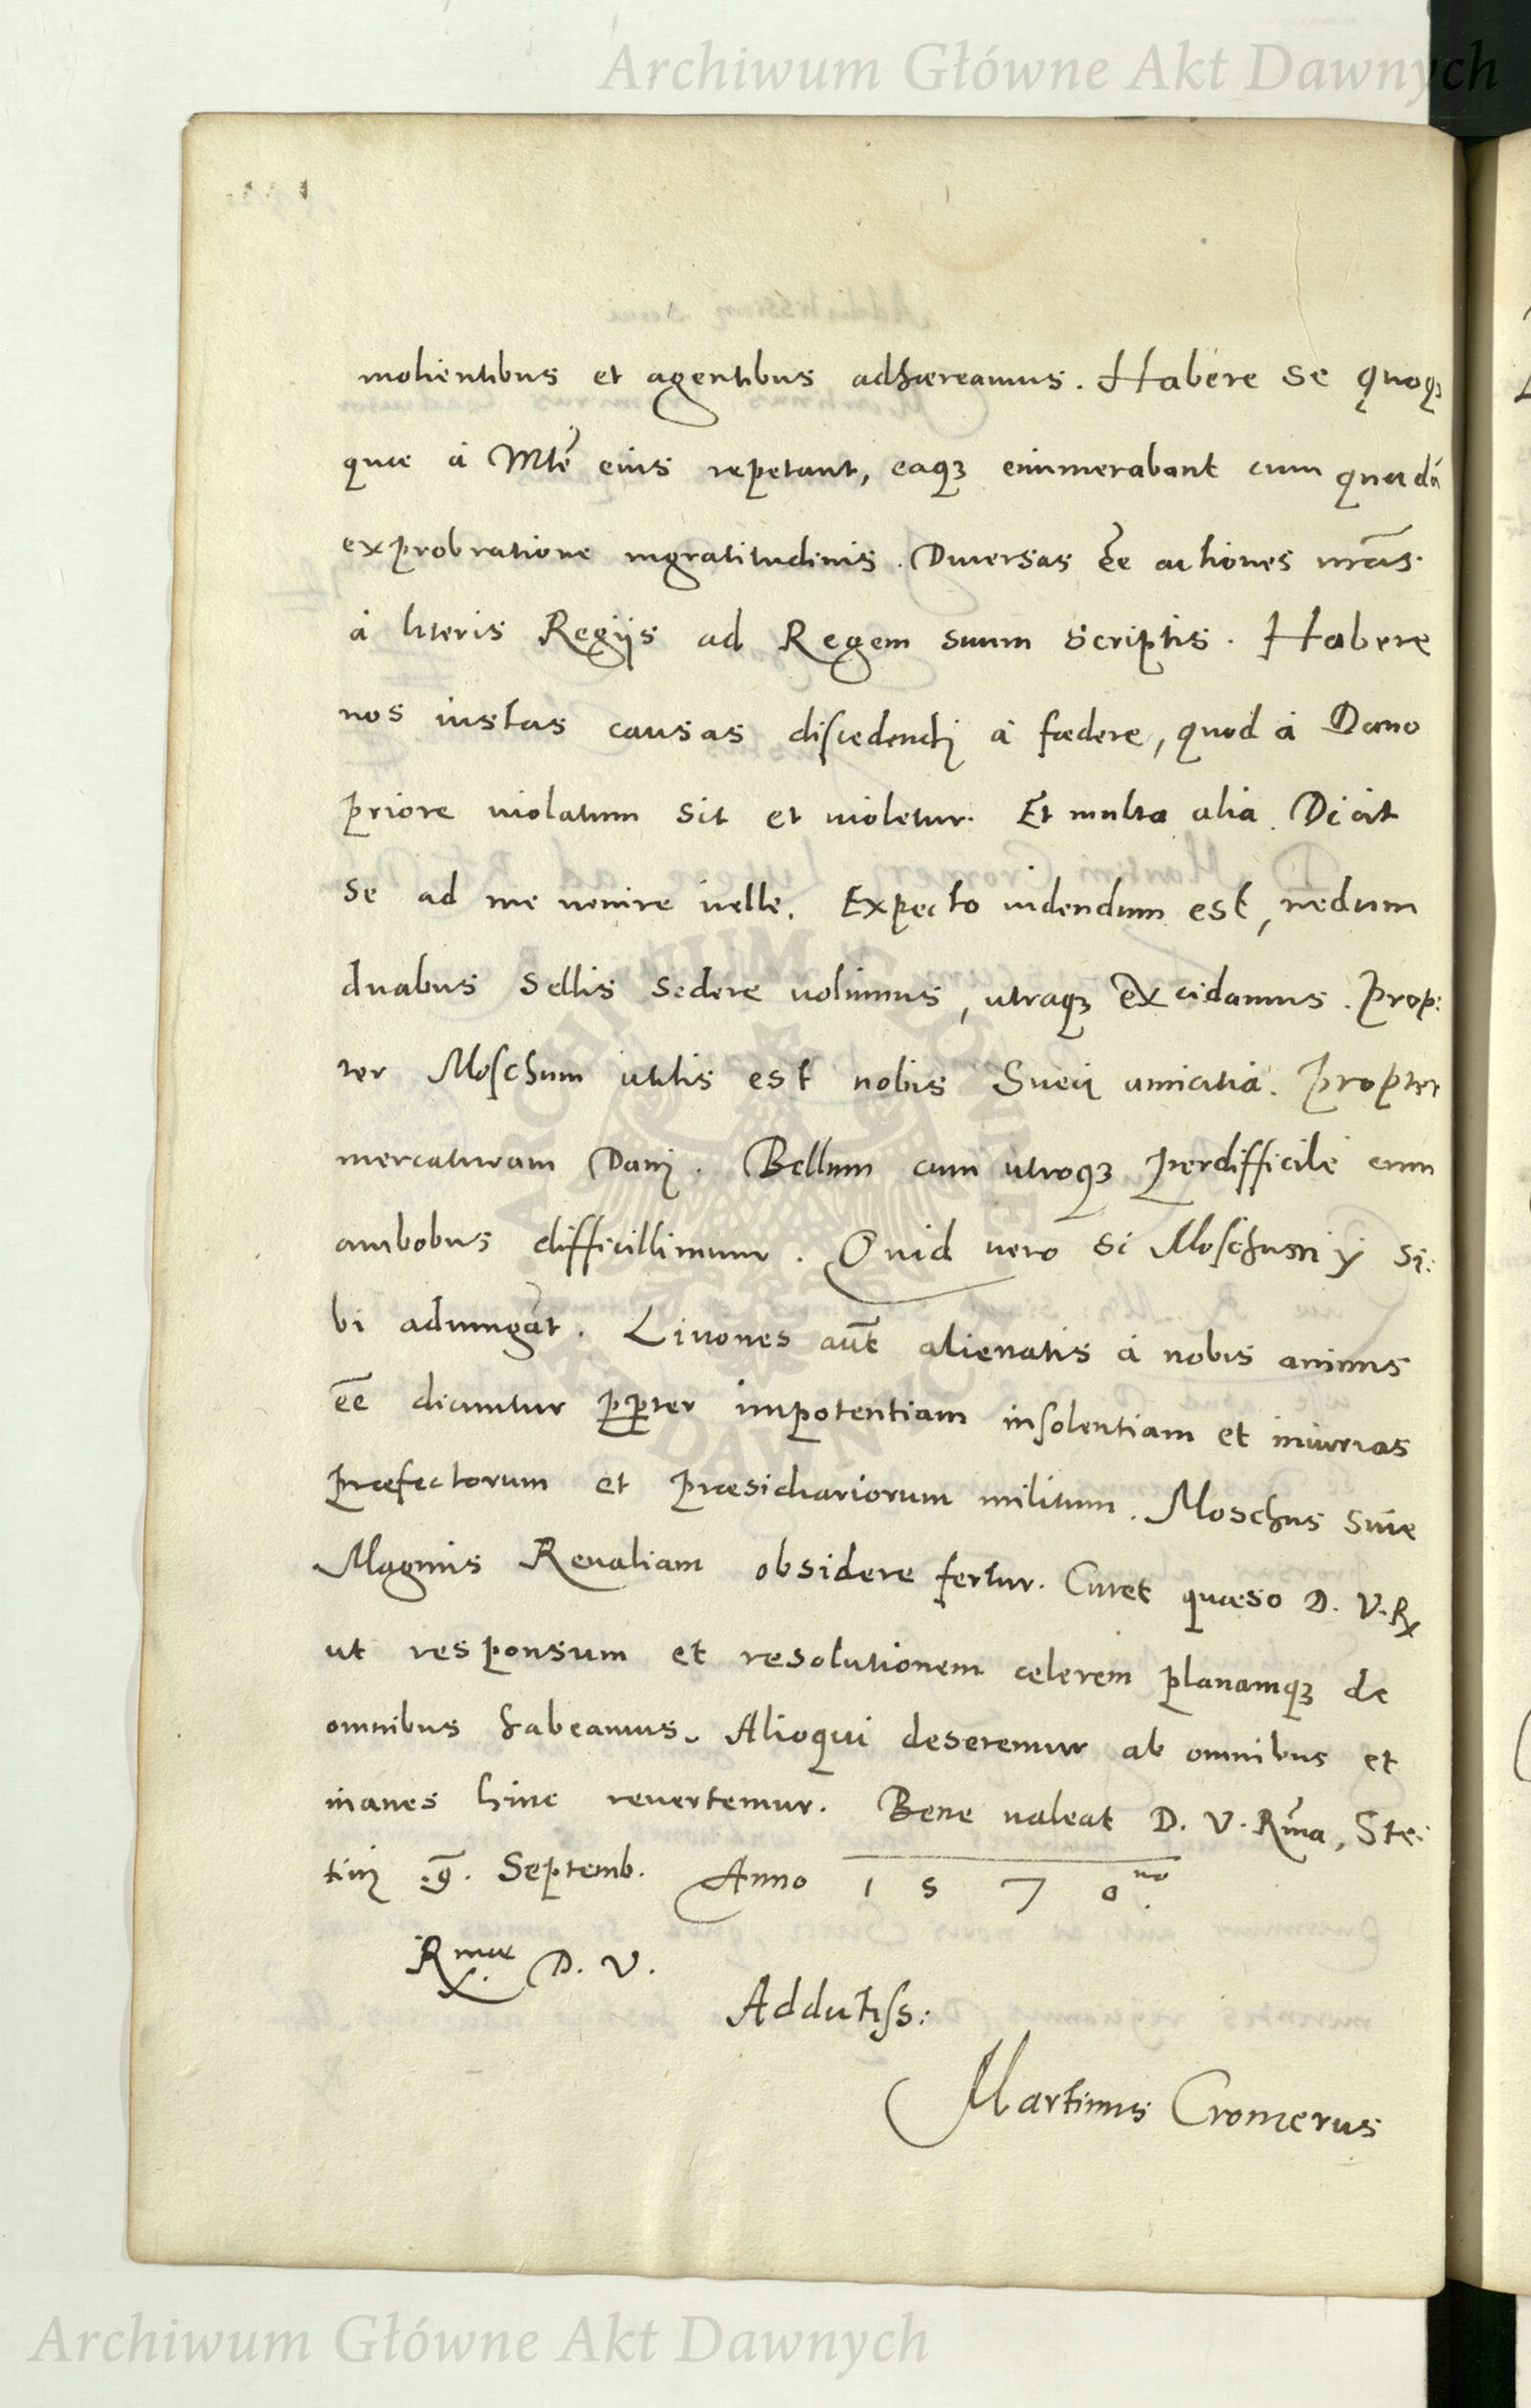 Archiwum Główne Akt Dawnych
molientibus et agentibus adhæreamus. Habere se quoqꝫ
quae à Mte᷉ eius repetant, eaqꝫ enumerabant cum quadã
exprobratione ingratitudinis. Diuersas ee᷉ actiones nr̃as
à literis Regijs ad Regem suum scriptis. Habere
nos iustas causas discedendj à fœdere, quod à Dano
priore uiolatum sit et uioletur. Et multa alia. Dicit
se ad me uenire uelle. Expecto uidendum est, nedum
duabus sellis sedere uolumus, utraqꝫ excidamus. Prop:
ter Moschum utilis est nobis Sueci amicitia. Propter
mercaturam Danj. Bellum cum utroqꝫ perdifficile cum
ambobus difficillimum. Quid uero si Moschum ij si:
bi adiungãt. Liuones aut᷉ alienatis à nobis animis
ee᷉ dicuntur ꝓpter impotentiam insolentiam et iniurias
præfectorum et præsidiariorum militum. Moschus siue
Magnus Reualiam obsidere fertur. Curet quæso D. V. R
ut responsum et resolutionem celerem planamqꝫ de
omnibus habeamus. Alioqui deseremur ab omnibus et
inanes hinc reuertemur. Bene ualeat D. V. Rm̃a, Ste:
tinj .9. Septemb. Anno 1570no.
Rmae D. V.
Addictiss:
Martinus Cromerus
ARCHIWUM GŁÓWNE AKT DAWNYCH
Archiwum Główne Akt Dawnych